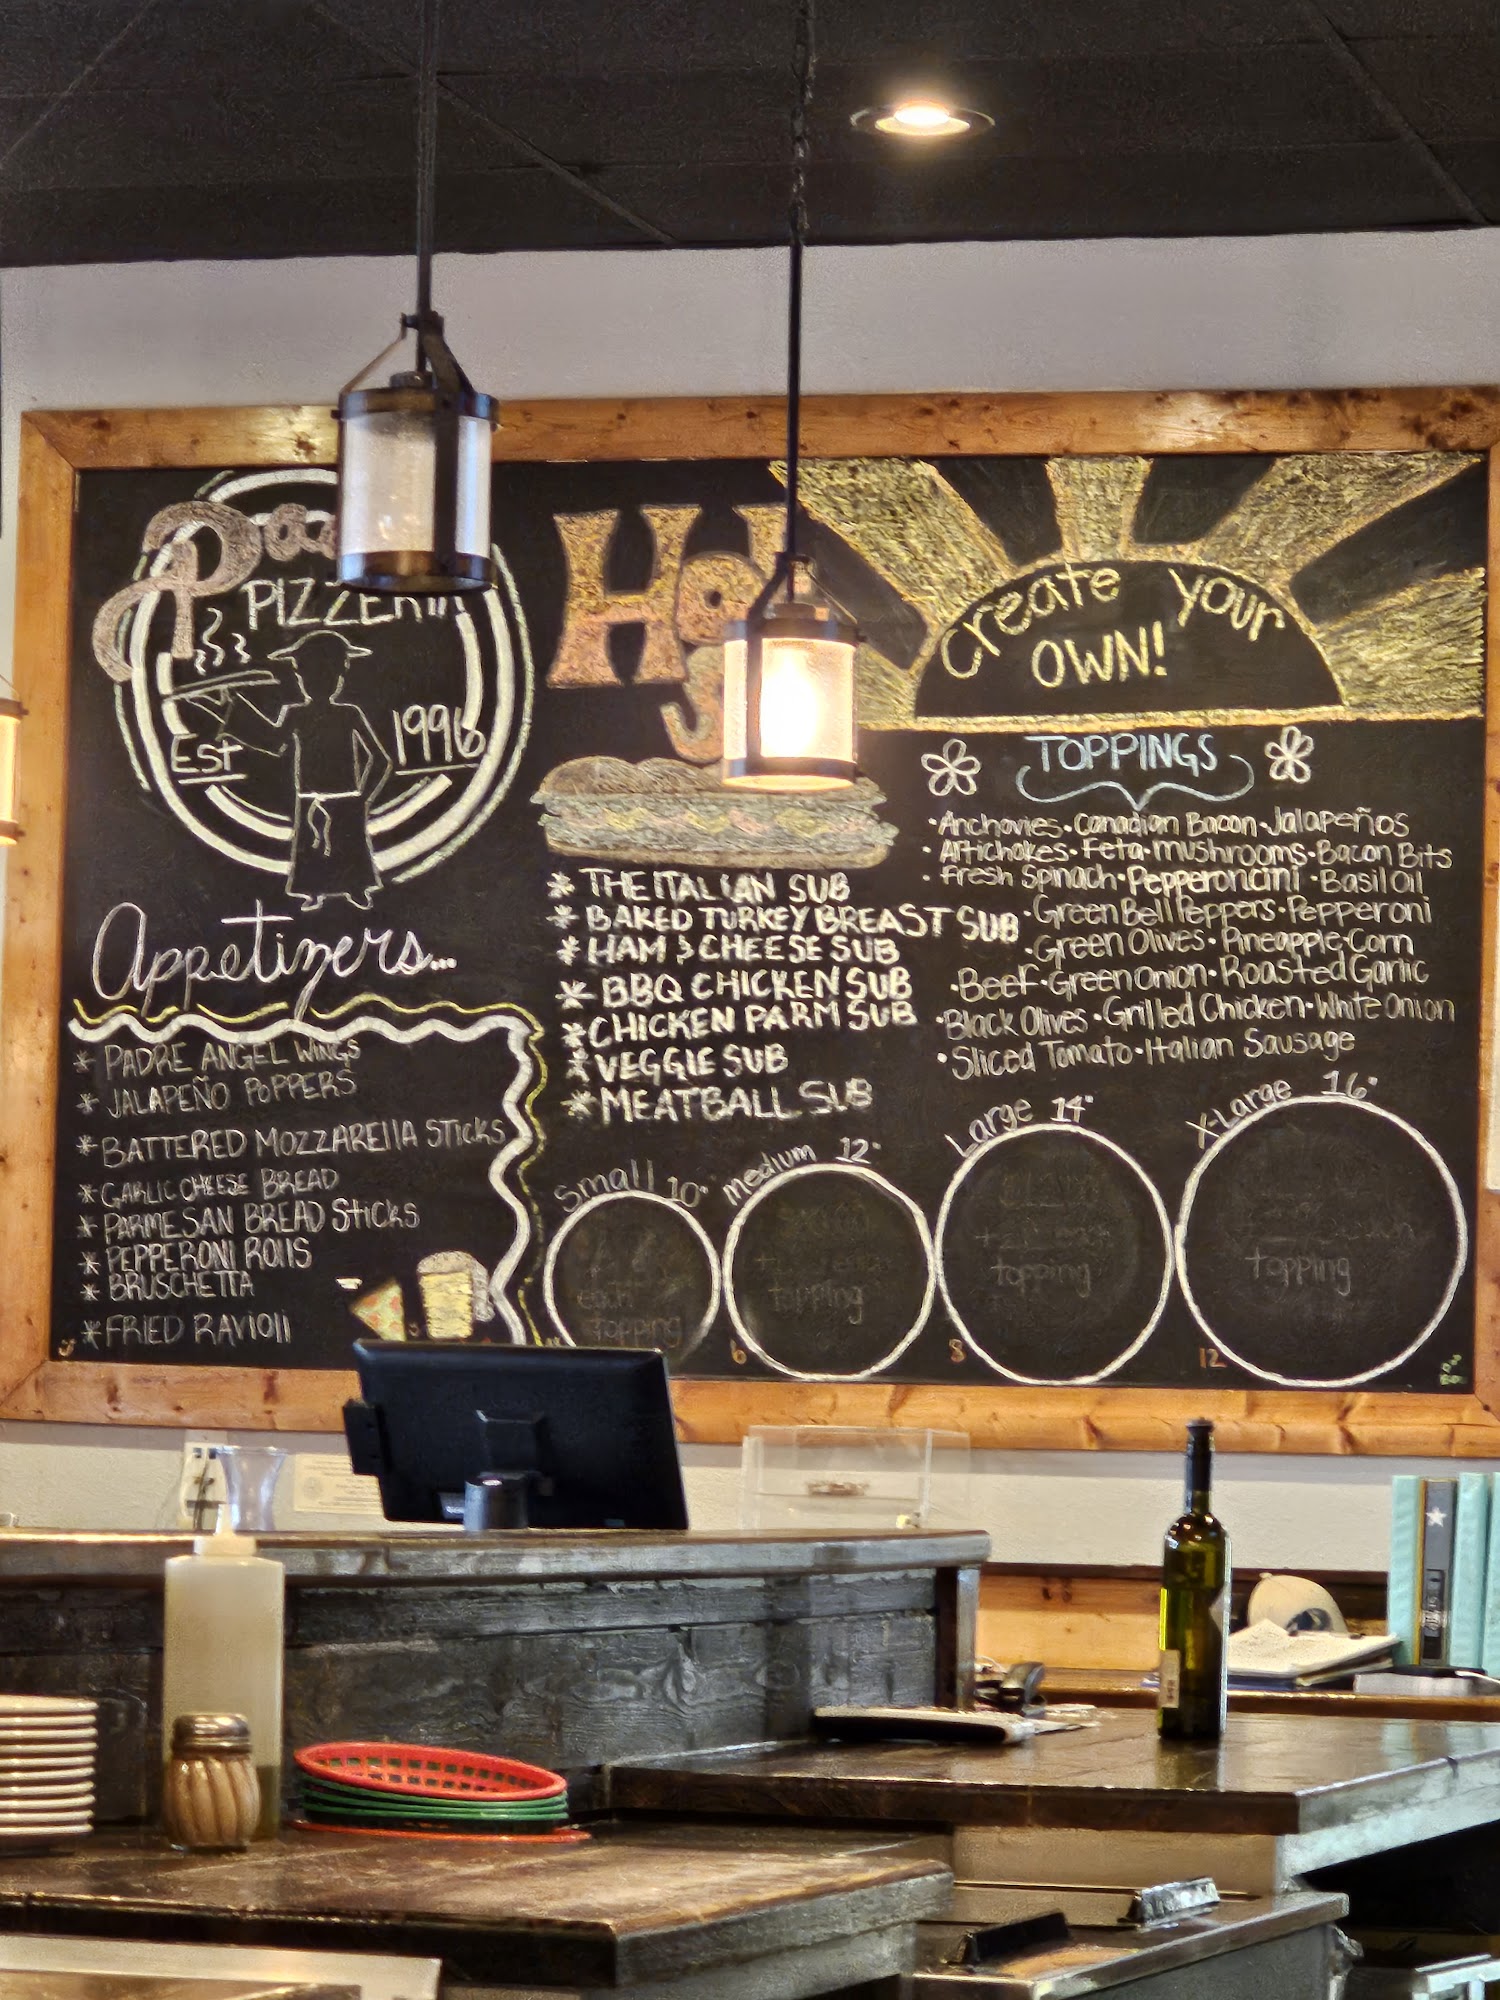 PIZZERIA
EST 1996
Appetizers...
* PADRE ANGEL WINGS
* JALAPEÑO POPPERS
* BATTERED MOZZARELLA STICKS
* GARLIC CHEESE BREAD
* PARMESAN BREAD STICKS
* PEPPERONI ROLLS
* BRUSCHETTA
* FRIED RAVIOLI
Hot
* THE ITALIAN SUB
* BAKED TURKEY BREAST SUB
* HAM & CHEESE SUB
* BBQ CHICKEN SUB
* CHICKEN PARM SUB
* VEGGIE SUB
* MEATBALL SUB
Create your
OWN!
TOPPINGS
•Anchovies•Canadian Bacon•Jalapeños
•Artichokes•Feta•mushrooms•Bacon Bits
•Fresh Spinach•Pepperoncini•Basil Oil
•Green Bell Peppers•Pepperoni
•Green Olives•Pineapple•Corn
•Beef•Green Onion•Roasted Garlic
•Black Olives•Grilled Chicken•White Onion
•Sliced Tomato•Italian Sausage
Small 10"
each
topping
medium 12"
topping
6
Large 14"
topping
8
X-Large 16"
topping
12